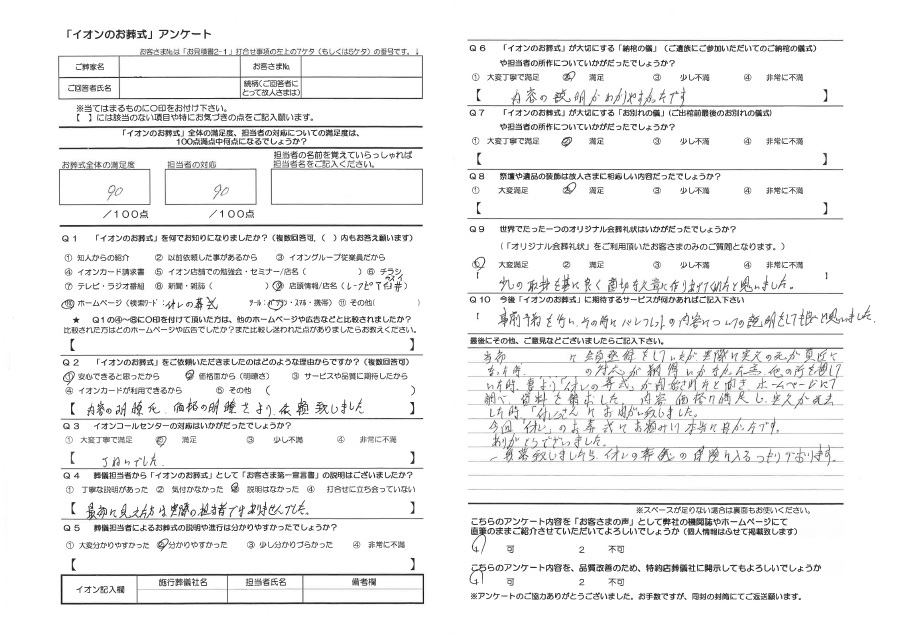 「イオンのお葬式」アンケート
お客さまNo.は「お見積書2-1」打合せ事項の左上の7ケタ（もしくは5ケタ）の番号です。↓
ご葬家名　お客さまNo.
ご回答者氏名　続柄（ご回答者にとって故人さまは）
※当てはまるものに○印をお付け下さい。
【　】には該当のない項目や特にお気づきの点をご記入願います。
「イオンのお葬式」全体の満足度、担当者の対応についての満足度は、
100点満点中何点になるでしょうか？
お葬式全体の満足度　担当者の対応　担当者の名前を覚えていらっしゃれば
担当者名をご記入ください。
90　90
／100点　／100点
Q1　「イオンのお葬式」を何でお知りになりましたか？（複数回答可、（　）内もお答え願います）
① 知人からの紹介　② 以前依頼した事があるから　③ イオングループ従業員だから
④ イオンカード請求書　⑤ イオン店舗での勉強会・セミナー/店名（　）⑥ チラシ
⑦ テレビ・ラジオ番組　⑧ 新聞・雑誌（　）⑨ 店頭情報/店名（レークピアウスイ臼井）
⑩ ホームページ（検索ワード：イオンの葬式　ツール：パソコン・スマホ・携帯）⑪ その他（　）
★ Q1の④～⑧に○印を付けて頂いた方は、他のホームページや広告などと比較されましたか？
比較された方はどのホームページや広告でしたか？また比較し迷われた点がありましたらお教えください。
【　】
Q2　「イオンのお葬式」をご依頼いただきましたのはどのような理由からですか？（複数回答可）
① 安心できると思ったから　② 価格面から（明瞭さ）　③ サービスや品質に期待したから
④ イオンカードが利用できるから　⑤ その他（　）
【内容の明瞭化、価格の明瞭さより、依頼致しました】
Q3　イオンコールセンターの対応はいかがだったでしょうか？
① 大変丁寧で満足　② 満足　③ 少し不満　④ 非常に不満
【ていねいでした。】
Q4　葬儀担当者から「イオンのお葬式」として「お客さま第一宣言書」の説明はございましたか？
① 丁寧な説明があった　② 気付かなかった　③ 説明はなかった　④ 打合せに立ち会っていない
【最初に見えた方は実際の担当者ではありませんでした。】
Q5　葬儀担当者によるお葬式の説明や進行は分かりやすかったでしょうか？
① 大変分かりやすかった　② 分かりやすかった　③ 少し分かりづらかった　④ 非常に不満
【　】
イオン記入欄　施行葬儀社名　担当者氏名　備考欄
Q6　「イオンのお葬式」が大切にする「納棺の儀」（ご遺族にご参加いただいてのご納棺の儀式）
や担当者の所作についていかがだったでしょうか？
① 大変丁寧で満足　② 満足　③ 少し不満　④ 非常に不満
【内容の説明がわかりやすかったです】
Q7　「イオンのお葬式」が大切にする「お別れの儀」（ご出棺前最後のお別れの儀式）
や担当者の所作についていかがだったでしょうか？
① 大変丁寧で満足　② 満足　③ 少し不満　④ 非常に不満
【　】
Q8　祭壇や遺品の装飾は故人さまに相応しい内容だったでしょうか？
① 大変満足　② 満足　③ 少し不満　④ 非常に不満
【　】
Q9　世界でたった一つのオリジナル会葬礼状はいかがだったでしょうか？
（「オリジナル会葬礼状」をご利用頂いたお客さまのみのご質問となります。）
① 大変満足　② 満足　③ 少し不満　④ 非常に不満
少しの取材を基に良く適切な文章に作り上げて頂けたと思いました。
Q10　今後「イオンのお葬式」に期待するサービスが何かあればご記入下さい
事前予約を行い、その時にパンフレットの内容についての説明をしても良いと思いました。
最後にその他、ご意見などございましたらご記入下さい。
当初　に会員登録をしていたが実際に実父の死が真近と
なった時、　の対応が納得いかなかった為、他の所を探して
いた時、妻より「イオンの葬式」が開始されたと聞き、ホームページにて
調べ、資料を請求した。内容、価格に満足し、実父が死去
した時、「イオンさん」にお願い致しました。
今回「イオン」のお葬式にお頼みして本当に良かったです。
ありがとうございました。
一段落致しましたら、イオンの葬儀の保険に入るつもりでおります。
※スペースが足りない場合は裏面もお使いください。
こちらのアンケート内容を「お客さまの声」として弊社の機関誌やホームページにて
直筆のままご紹介させていただいてよろしいでしょうか（個人情報はふせて掲載致します）
1　可　2　不可
こちらのアンケート内容を、品質改善のため、特約店葬儀社に開示してもよろしいでしょうか
1　可　2　不可
※アンケートのご協力ありがとうございました。お手数ですが、同封の封筒にてご返送願います。